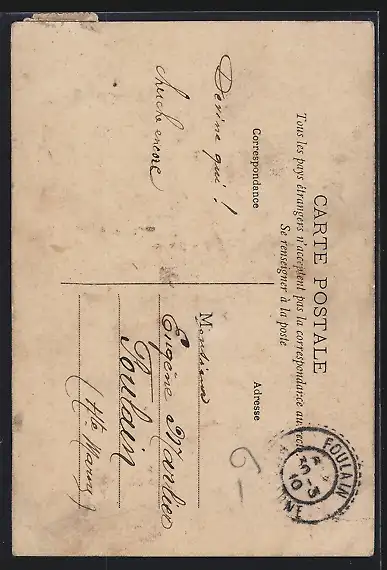 CARTE POSTALE
Tous les pays étrangers n'acceptent pas la correspondance au recto
Se renseigner à la poste
Correspondance
Adresse
Devine qui !
cherche encore
Monsieur
Eugène Marlier
Foulain
(Hte Marne)
6
FOULAIN
5-3
10